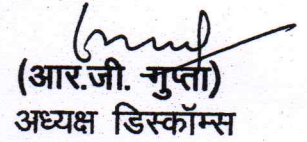 (आर.जी. गुप्ता)
अध्यक्ष डिस्कॉम्स